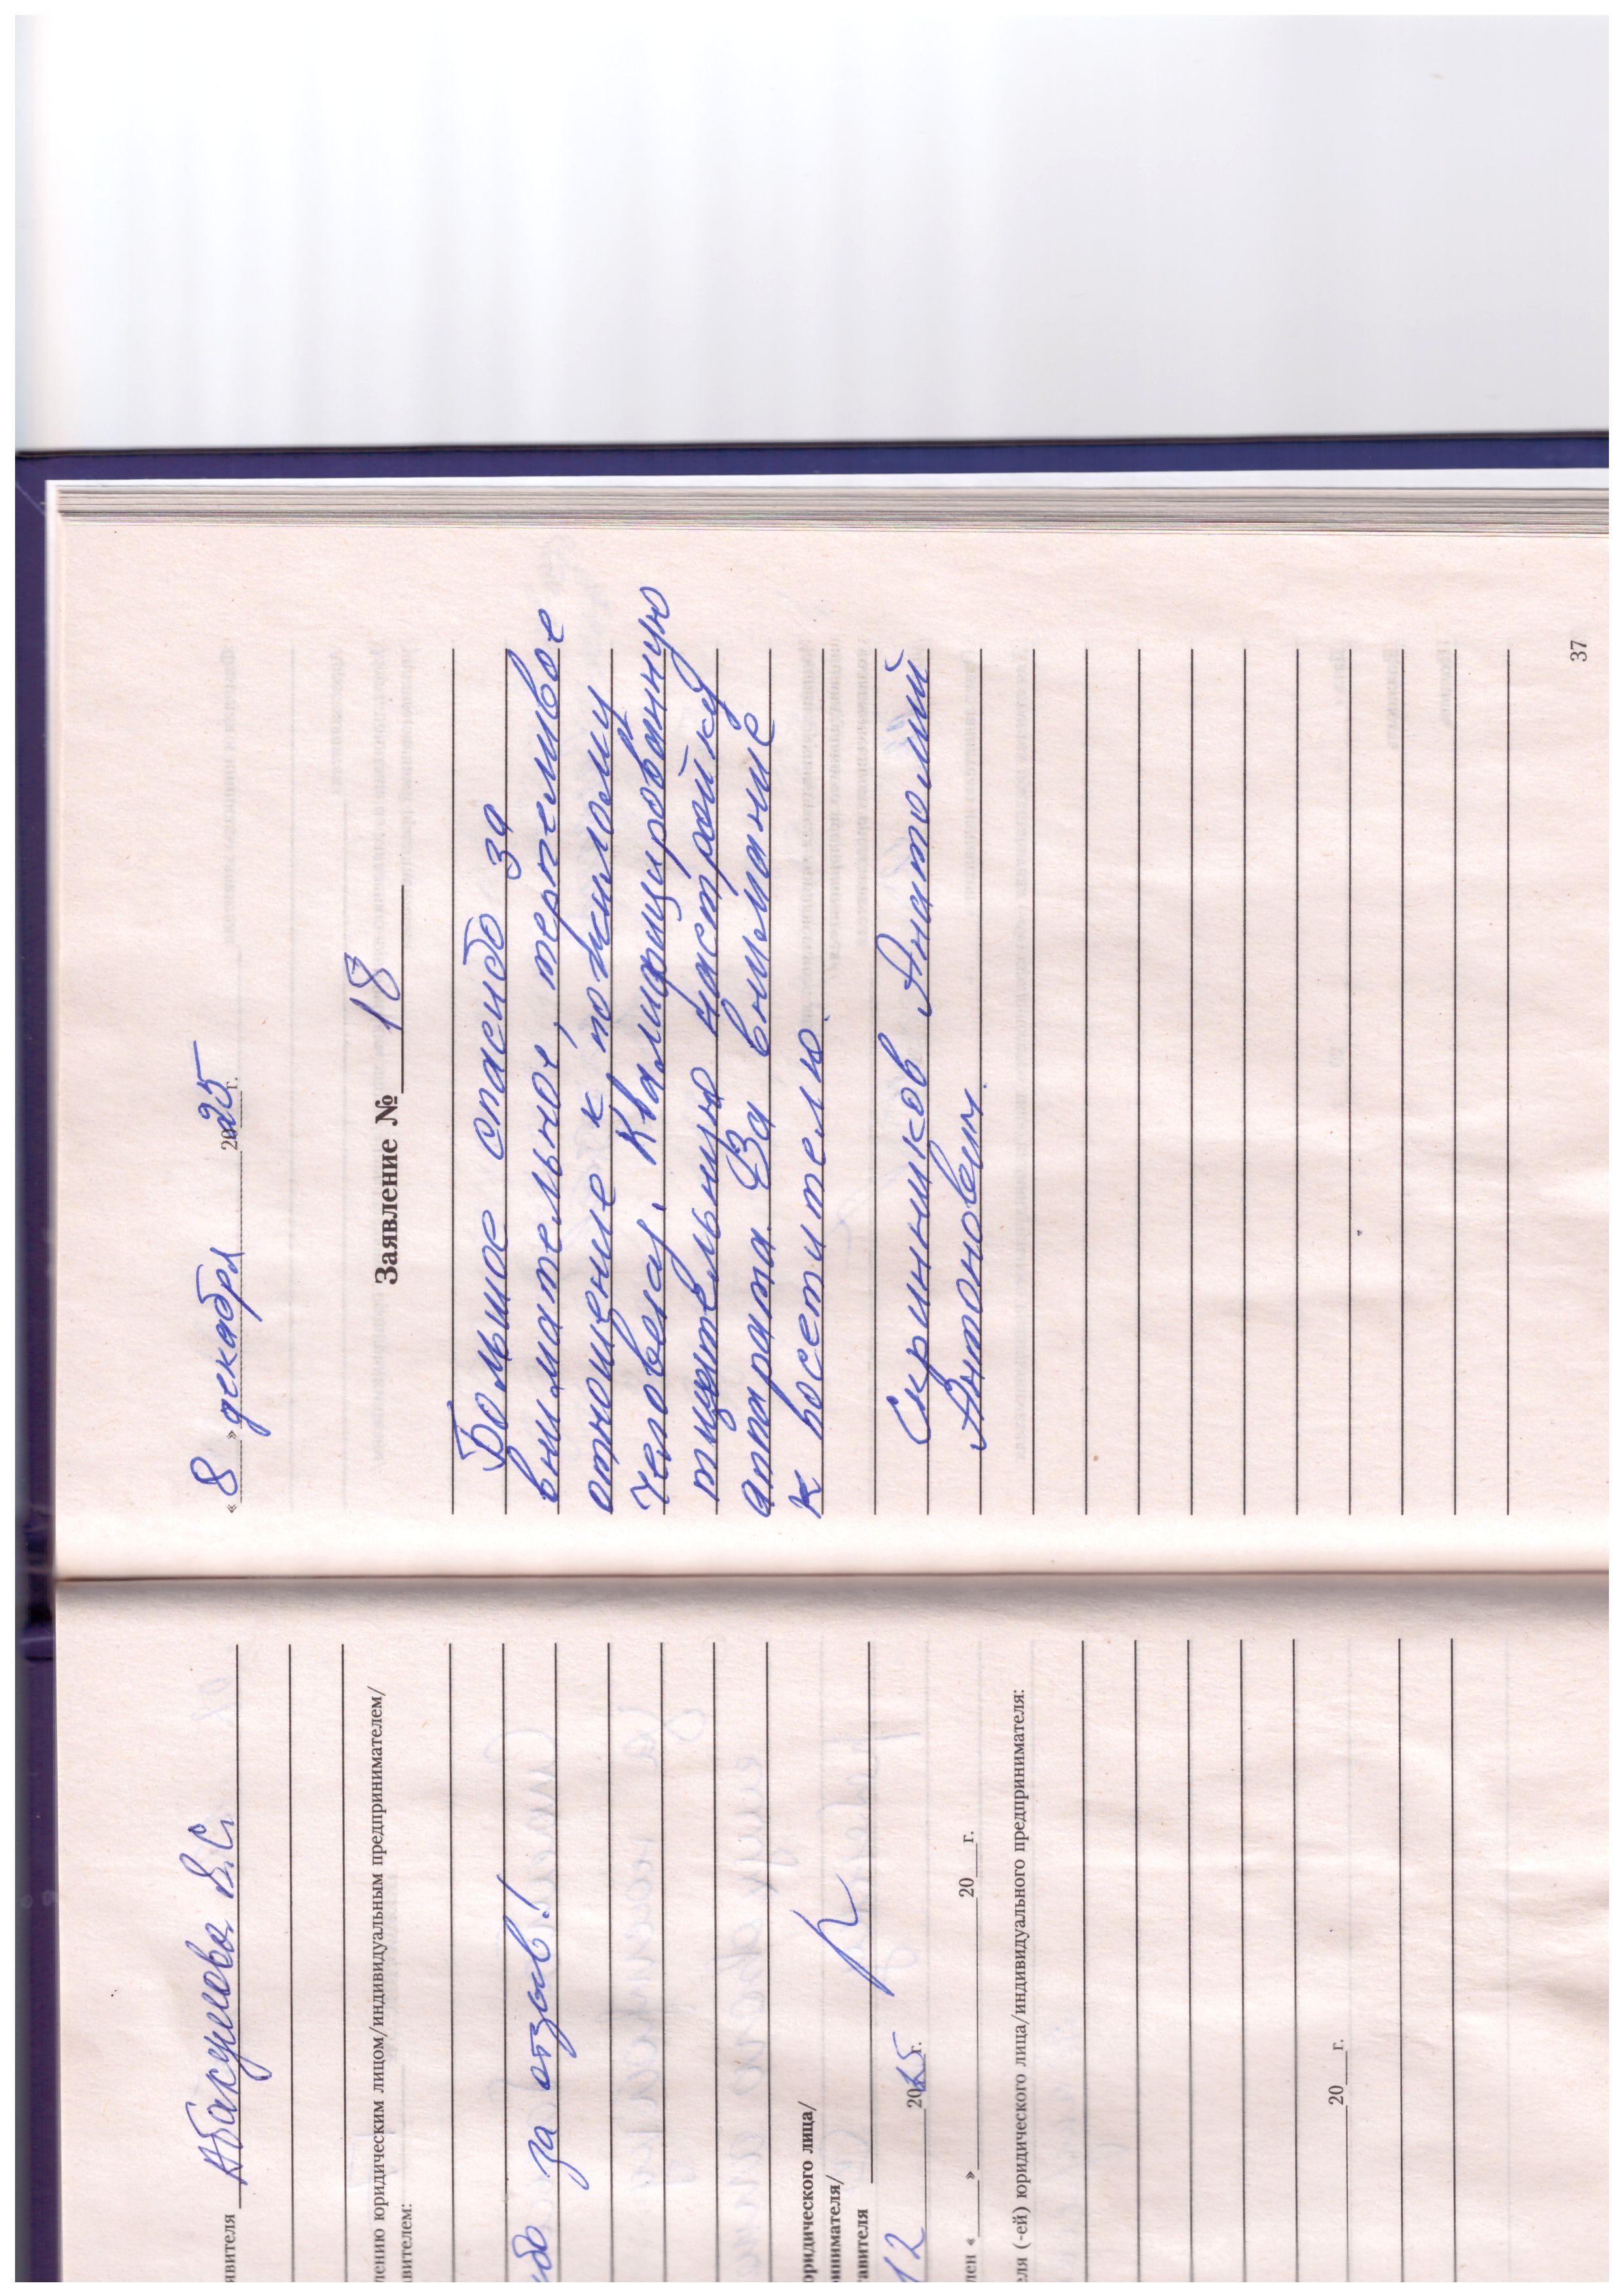 явителя Абакумова В.С.
лению юридическим лицом/индивидуальным предпринимателем/
вителем:
за отзыв!
оридического лица/
инимателя/
тавителя
12 2025г.
лен «___»____________20___г.
еля (-ей) юридического лица/индивидуального предпринимателя:
____________20___г.
« 8 » декабря 2025г.
Заявление № 18
Большое спасибо за
внимательное, терпеливое
отношение к пожилому
человеку. Квалифицированную
тщательную настройку
аппарата. За внимание
к посетителю.
Скринников Анатолий
Антонович.
37